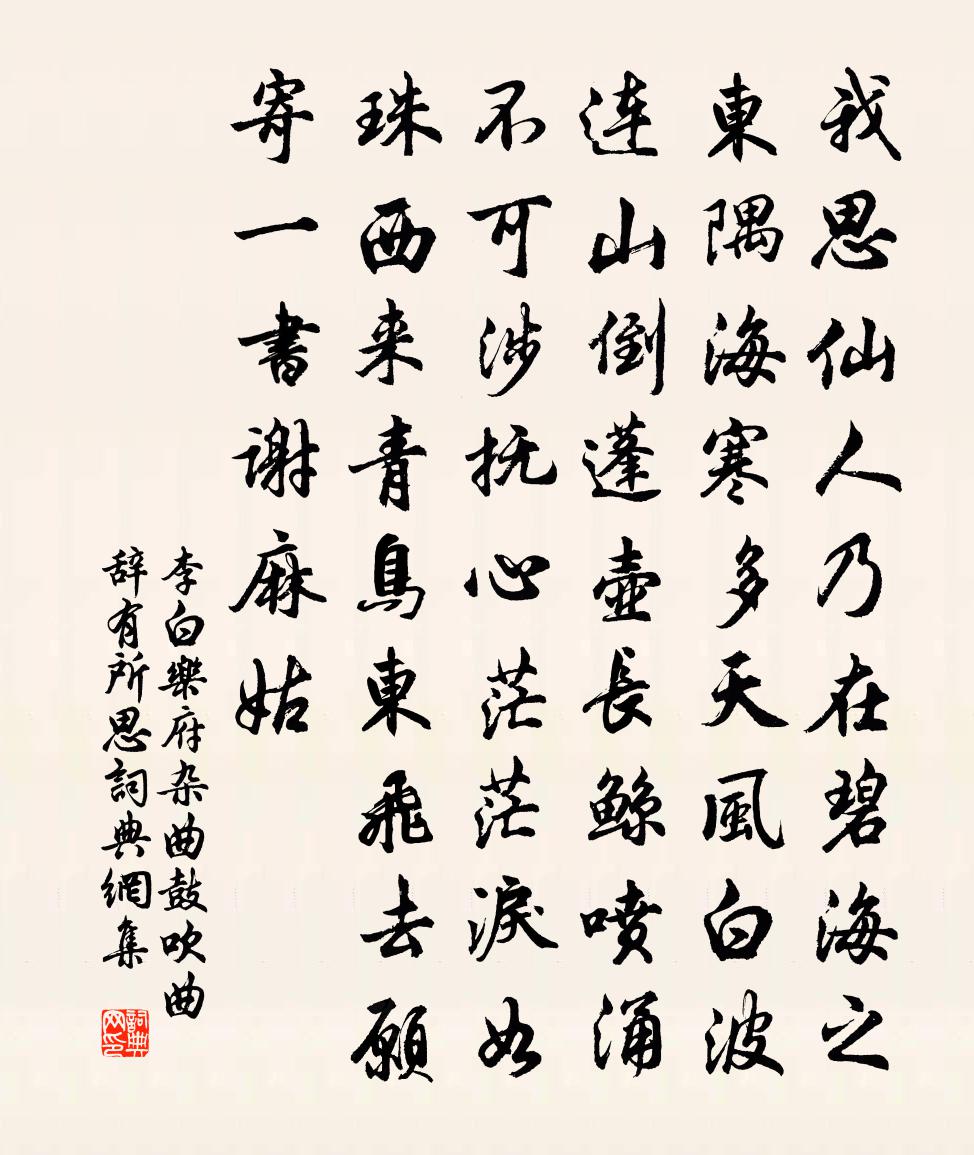 我思仙人乃在碧海之
東隅海寒多天風白波
連山倒蓬壺長鯨喷涌
不可涉抚心茫茫淚如
珠西来青鳥東飛去願
寄一書谢麻姑
李白樂府杂曲鼓吹曲
辞有所思詞典網集
詞典网印